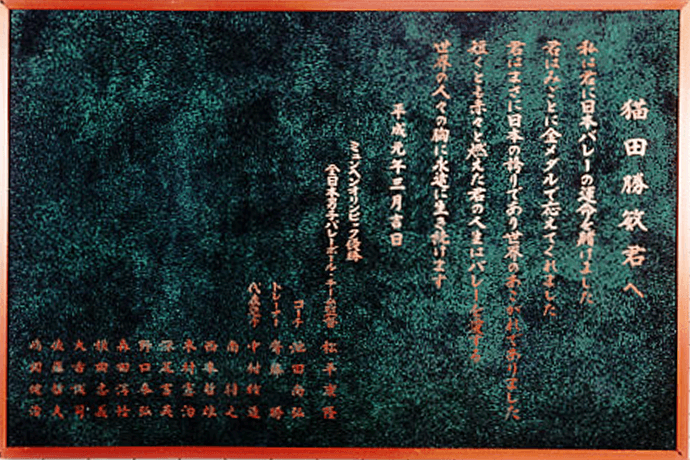 猫田勝敏君へ
私は君に日本バレーの運命を賭けました
君はみごとに金メダルで応えてくれました
君はまさに日本の誇りであり世界のあこがれでありました
短くとも赤々と燃えた君の人生はバレーを愛する
世界の人々の胸に永遠に生き続けます
平成元年三月吉日
ミュンヘンオリンピック優勝
全日本男子バレーボール・チーム監督 松平康隆
コーチ 池田尚弘
トレーナー 斎藤勝
代表選手 中村祐造
南将之
西本哲雄
木村憲治
深尾吉英
野口泰弘
森田淳悟
横田忠義
大古誠司
佐藤哲夫
嶋岡健治